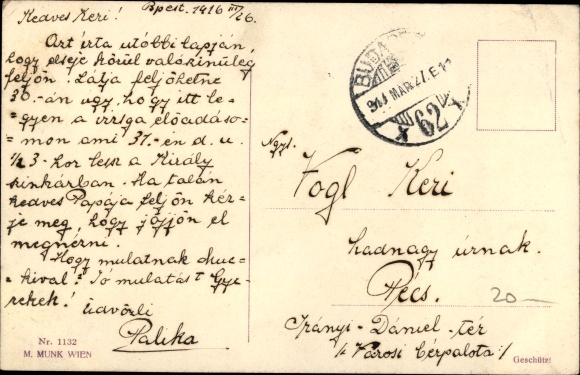 Kedves Keri! Bpest. 1916 III/26.
Azt írta utóbbi lapján,
hogy elseje körül valószinüleg
feljön. Látja feljöhetne
30.-án úgy, hogy itt le=
=gyen a vizsga előadáso=
=mon ami 31.-én d. u.
1/2 3-kor lesz a Király
szinházban. Ha talán
kedves Papája feljön kér=
je meg, hogy jöjjön el
megnézni.
Hogy mulatnak
=kival? Jó mulatást Gye=
rekek! üdvözli
Palika
Nr. 1132
M. MUNK WIEN
BUDAPEST
916 MAR. 27. E 11
62
Ngys.
Vogl Keri
hadnagy úrnak.
Pécs.
20 —
Irányi-Dániel-tér
/: Városi bérpalota :/
Geschützt